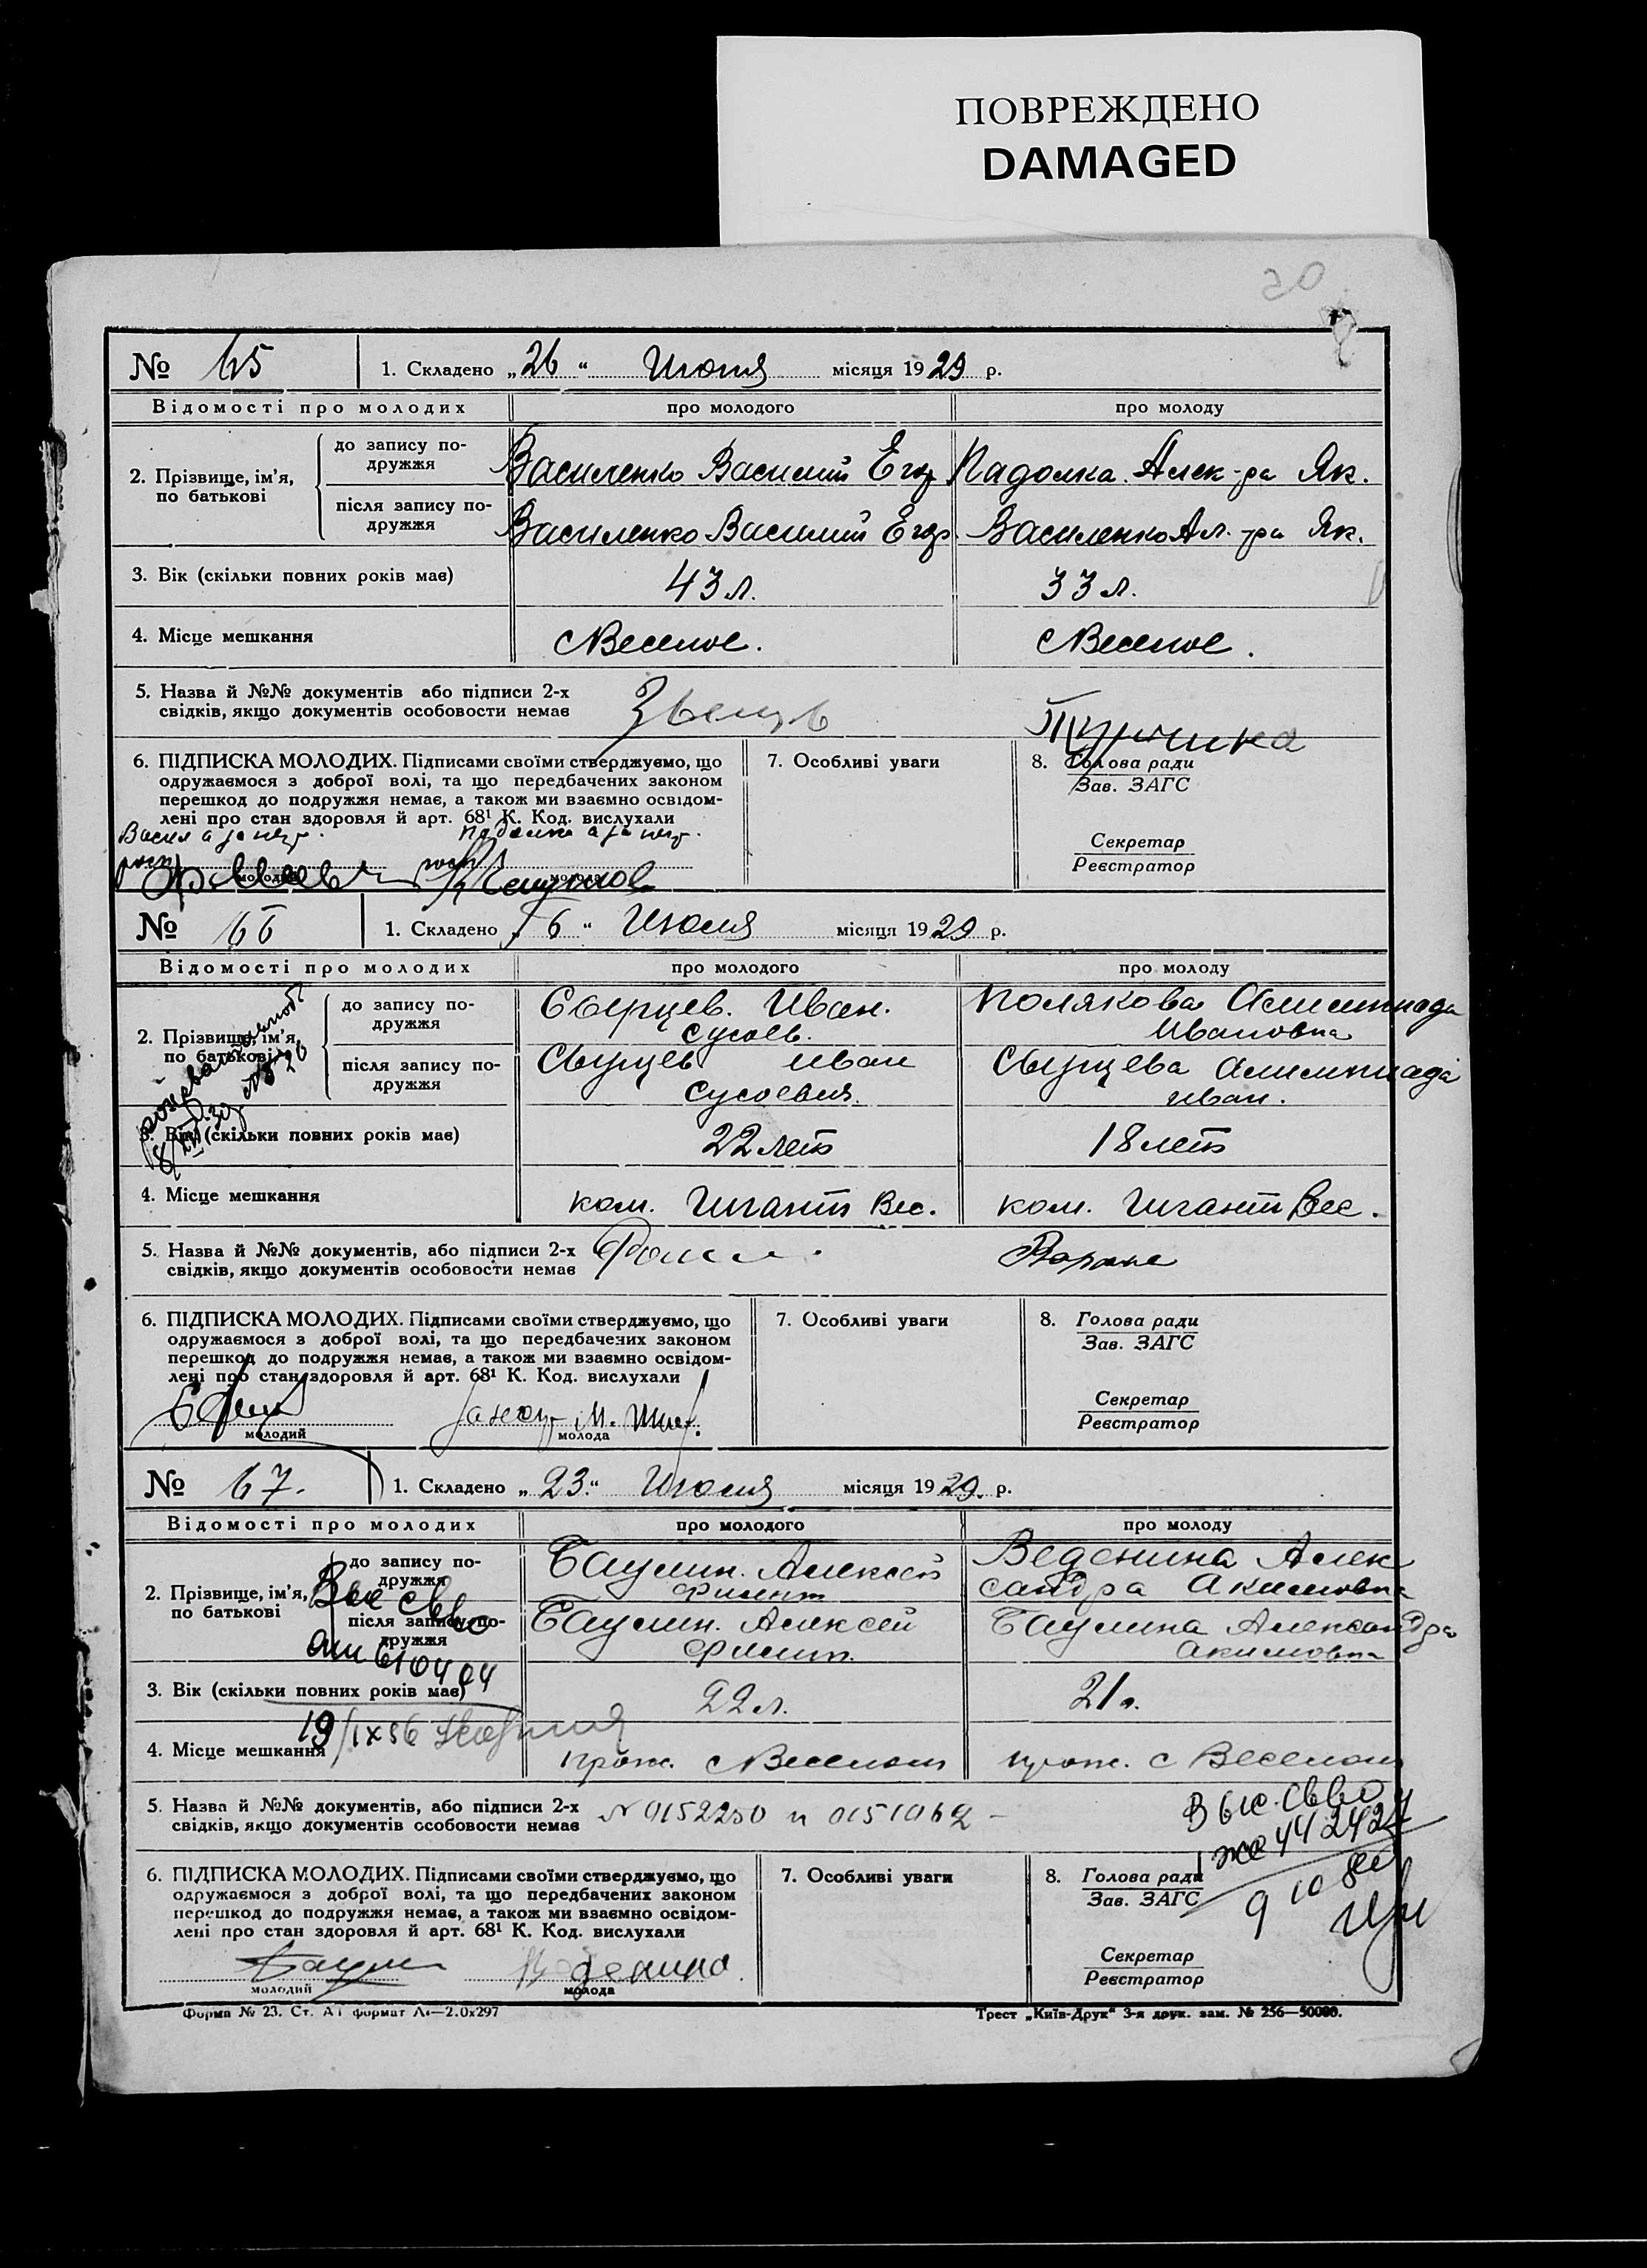 ПОВРЕЖДЕНО
DAMAGED
№ 65 1. Складено „26“ Июня місяця 1929 р.
Відомості про молодих про молодого про молоду
2. Прізвище, ім'я, по батькові
до запису подружжя Василенко Василий Егор Падолка Алек-ра Як.
після запису подружжя Василенко Василий Егор. Василенко Ал-ра Як.
3. Вік (скільки повних років має) 43 л. 33 л.
4. Місце мешкання с Веселое. с Веселое.
5. Назва й №№ документів або підписи 2-х
свідків, якщо документів особовости немає
6. ПІДПИСКА МОЛОДИХ. Підписами своїми стверджуємо, що
одружаємося з доброї волі, та що передбачених законом
перешкод до подружжя немає, а також ми взаємно освідом-
лені про стан здоровля й арт. 68¹ К. Код. вислухали
молодий молода
7. Особливі уваги
8. Голова ради
Зав. ЗАГС
Секретар
Реєстратор
№ 66 1. Складено „6“ Июля місяця 1929 р.
Відомості про молодих про молодого про молоду
2. Прізвище, ім'я, по батькові
до запису подружжя Сырцев. Иван. Сусоев. Полякова Алимпиада Ивановна
після запису подружжя Сырцев Иван Сусоевич. Сырцева Алимпиада Иван.
3. Вік (скільки повних років має) 22 лет 18 лет
4. Місце мешкання ком. Гигант Вес. ком. Гигант Вес.
5. Назва й №№ документів, або підписи 2-х
свідків, якщо документів особовости немає
6. ПІДПИСКА МОЛОДИХ. Підписами своїми стверджуємо, що
одружаємося з доброї волі, та що передбачених законом
перешкод до подружжя немає, а також ми взаємно освідом-
лені про стан здоровля й арт. 68¹ К. Код. вислухали
молодий молода
7. Особливі уваги
8. Голова ради
Зав. ЗАГС
Секретар
Реєстратор
№ 67. 1. Складено „23“ Июля місяця 1929. р.
Відомості про молодих про молодого про молоду
2. Прізвище, ім'я, по батькові
до запису подружжя Баулин. Алексей Филип Веденина Александра Акимовна
після запису подружжя Баулин. Алексей Филип. Баулина Александра Акимовна
3. Вік (скільки повних років має) 22 л. 21 л.
4. Місце мешкання прож. с Веселом прож. с Веселом
5. Назва й №№ документів, або підписи 2-х
свідків, якщо документів особовости немає
6. ПІДПИСКА МОЛОДИХ. Підписами своїми стверджуємо, що
одружаємося з доброї волі, та що передбачених законом
перешкод до подружжя немає, а також ми взаємно освідом-
лені про стан здоровля й арт. 68¹ К. Код. вислухали
молодий молода
7. Особливі уваги
8. Голова ради
Зав. ЗАГС
Секретар
Реєстратор
Трест „Київ-Друк“ 3-я друк. зам. № 256—50000.